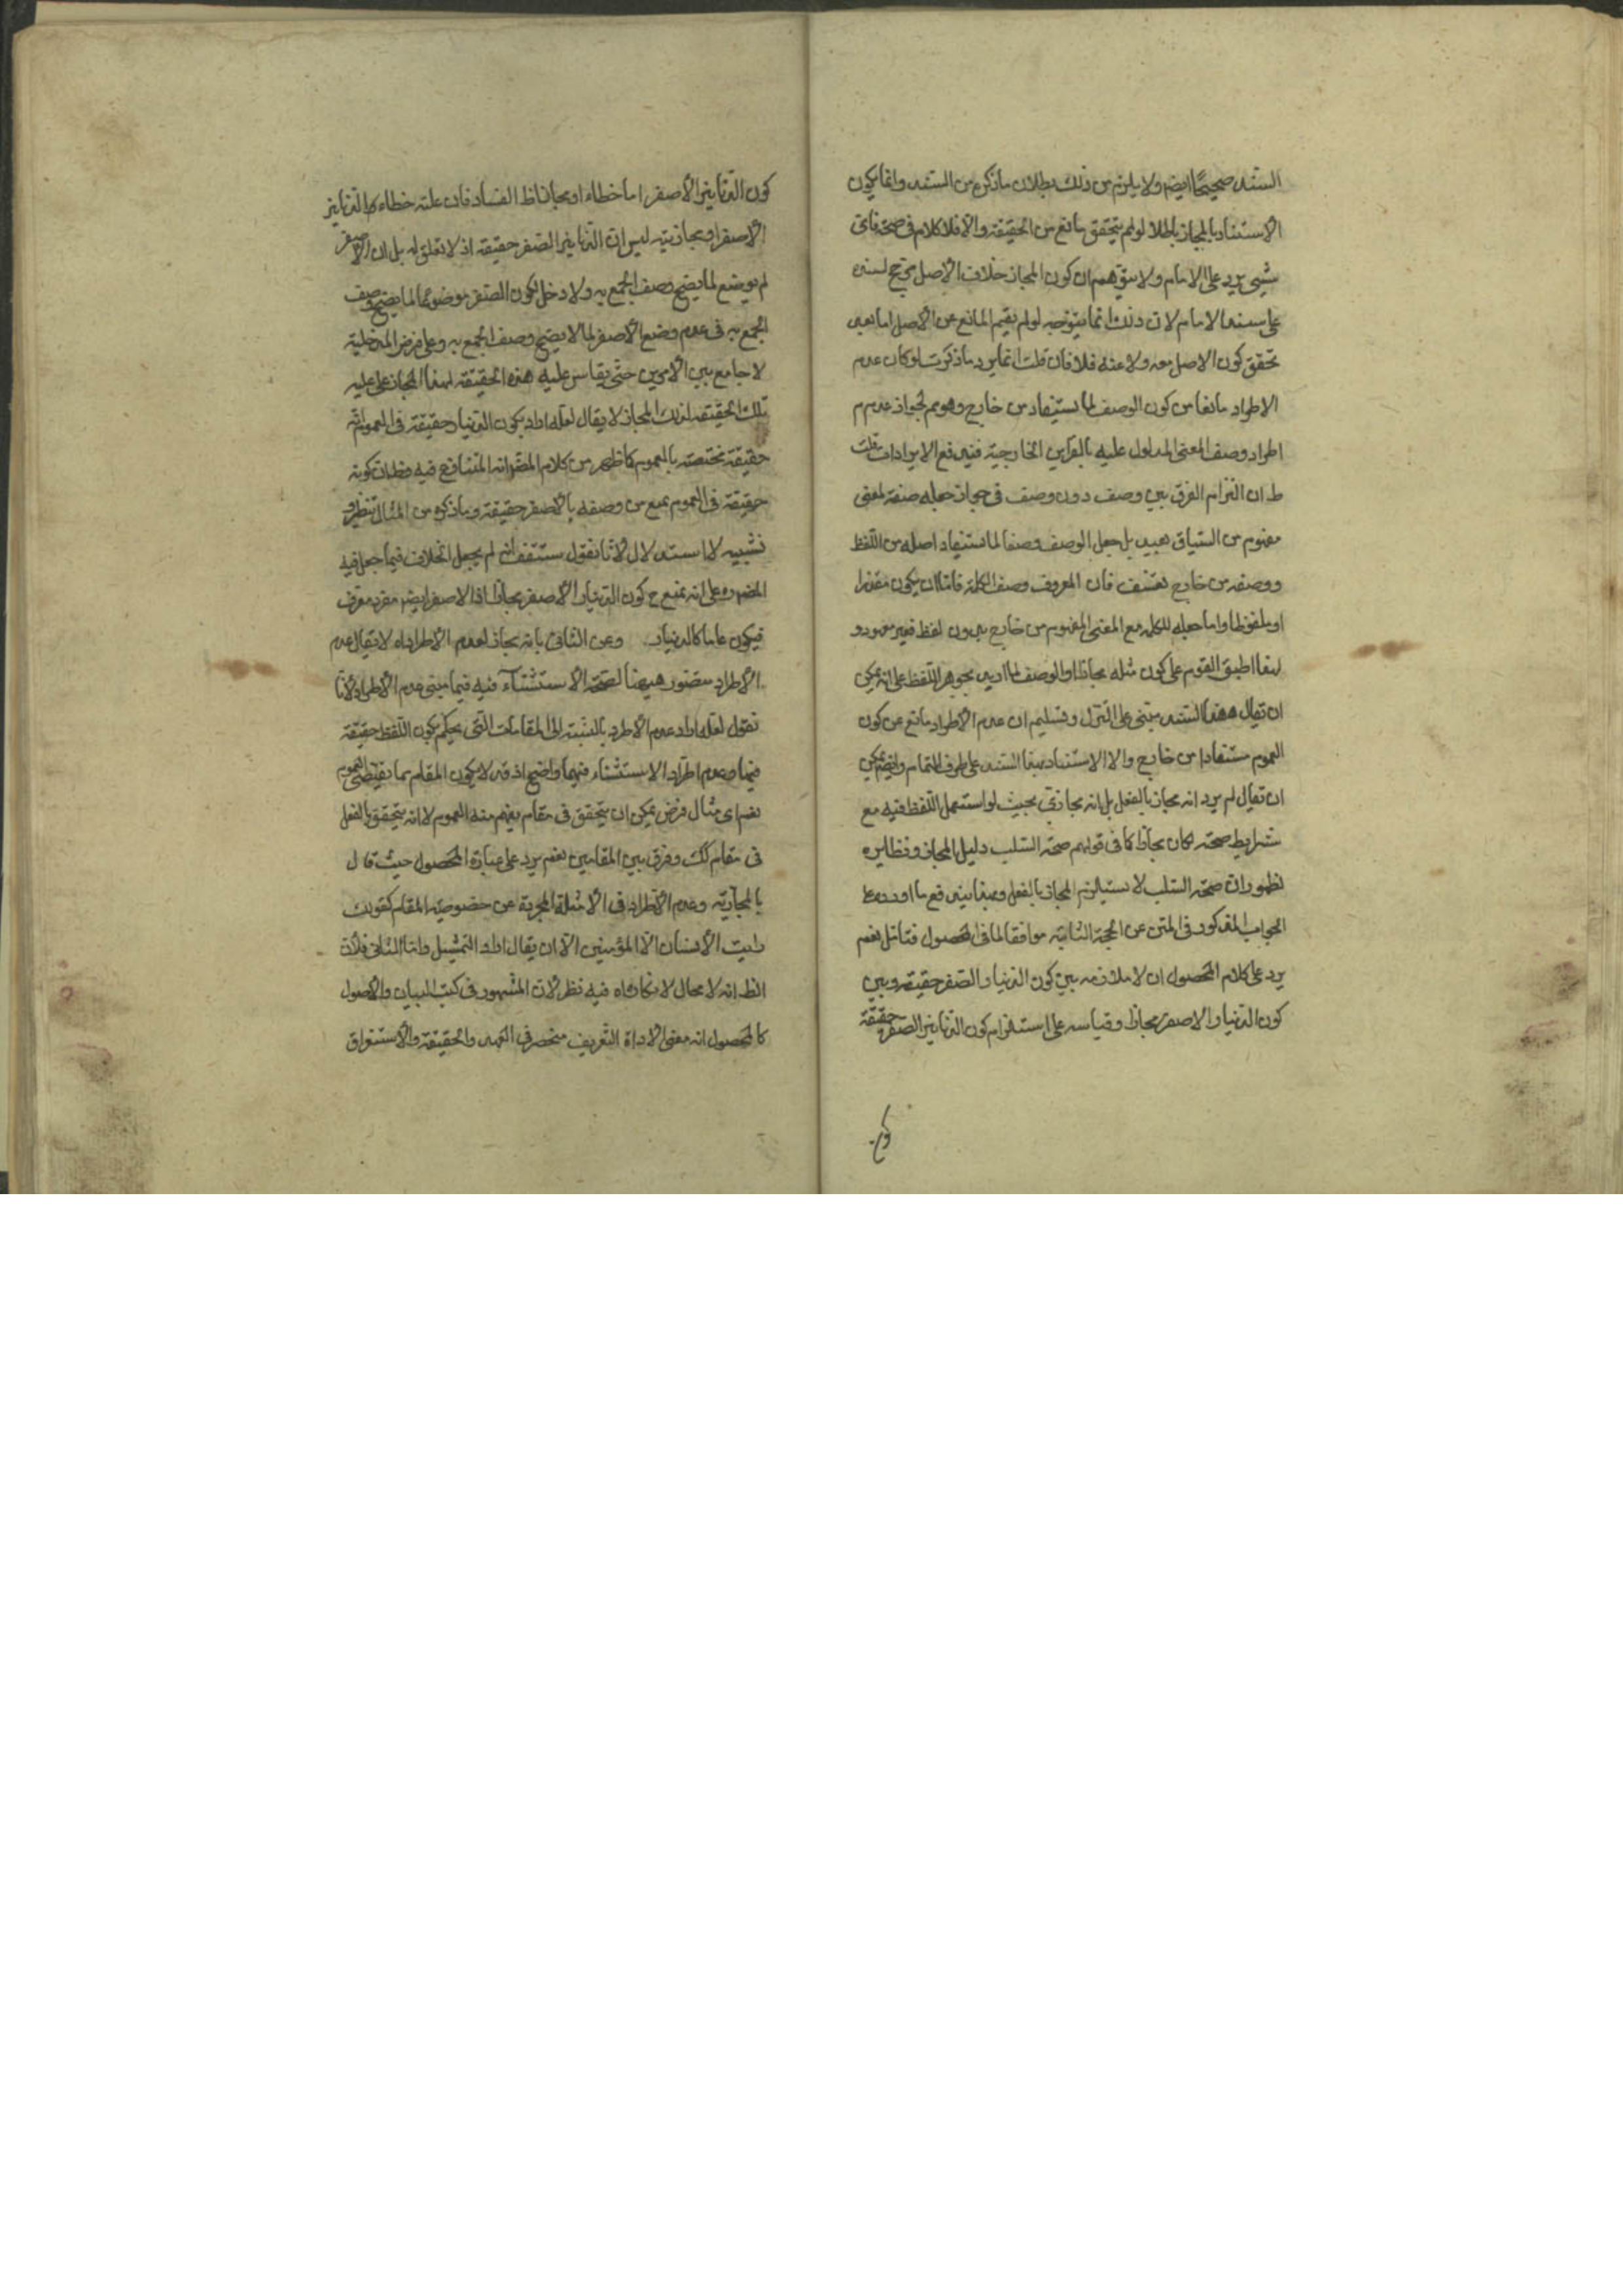 السند صحيحًا ايضم ولا يلزم من ذلك بطلان ما ذكره من السند وانما يكون
الاستناد بالمجاز باطلا لو لم يتحقق مانع من الحقيقة والا فلا كلام في صحته فاى
شيى يرد على الامام ولا يتوهم ان كون المجاز خلاف الأصل مرجح لسند
على سند الامام لان ذلك انما يتوجه لو لم يقم المانع عن الأصل اما بعد
تحقق كون الاصل معه ولا عنه فلا فان قلت انما يرد ما ذكرت لو كان عدم
الاطراد مانعا من كون الوصف لما يستفاد من خارج وهو مم لجواز عدم
اطراد وصف المعنى المدلول عليه بالقراين الخارجية فيندفع الايرادات قلت
ان التزام الفرق بين وصف دون وصف في جواز جعله صفة لمعنى
مفهوم من السياق بعيد بل جعل الوصف وصفا لما يستفاد اصله من اللفظ
ووصفه من خارج تعسف فان المعروف وصف الكلمة فاما ان يكون مقدرا
او ملفوظا واما جعله للكلمة مع المعنى المفهوم من خارج بدون لفظ فغير معهود و
لهذا اطبق القوم على كون مثله مجازا او الوصف لما اريد بجوهر اللفظ على انه يمكن
ان يقال هذا السند مبتنى على التنزل وتسليم ان عدم الاطراد مانع عن كون
العموم مستفادا من خارج والا الاستناد بهذا السند على طرف التمام وايضم يمكن
ان يقال لم يرد انه مجاز بالفعل بل انه مجازى بحيث لو استعمل اللفظ فيه مع
شرايط صحته لكان مجازا كما في قولهم صحة السلب دليل المجاز ونظايره
لظهور ان صحة السلب لا يستلزم المجاز بالفعل وبهذا يندفع ما اورد على
الجواب المذكور في المتن عن الحجة الثانية موافقا لما في المحصول فتامل نعم
يرد على كلام المحصول ان لا ملازمة بين كون الدينار الصفر حقيقة وبين
كون الدينار الاصفر مجازا وقياسه على استلزام كون الدنانير الصفر حقيقة
كون الدنانير الأصفر اما خطاء او مجازا ظ الفساد فان علة خطاء كالدنانير
الأصفر او مجازيته ليس ان الدنانير الصفر حقيقة اذ لا تعلق له بل ان الاصفر
لم يوضع لما يصح وصف الجمع به ولا دخل لكون الصفر موضوعا لما يصح وصف
الجمع به في عدم وضع الأصفر لما لا يصح وصف الجمع به وعلى فرض المدخلية
لا جامع بين الأمرين حتى يقاس عليه هذه الحقيقة لهذا المجاز على علية
تلك الحقيقة لذلك المجاز لا يقال لعله اراد بكون الدينار حقيقة في العموم انه
حقيقة مختصة بالعموم كما ظهر من كلام المصم انه المتنازع فيه وظ ان كونه
حقيقة في العموم يمنع من وصفه بالأصفر حقيقة وما ذكره من المثال تنظير و
تشبيه لا استدلال لأنا نقول ستقف انه لم يجعل الخلاف فيما جعل فيه
المصم على انه يمنع ح كون الدينار الأصفر مجازا اذ الاصفر ايضم مفرد معرف
فيكون عاما كالدينار وعن الثاني بانه مجاز لعدم الأطراد اه لا يقال عدم
الأطراد متصور ههنا لصحة الأستثناء فيه فيما مبنى عدم الأطراد لأنا
نقول لعله اراد عدم الأطراد بالنسبة الى المقامات التي يحكم بكون اللفظ حقيقة
فيها وعدم اطراد الاستثناء فيها واضح اذ قد لا يكون المقام مما يقتضى العموم
نعم اى مثال فرض يمكن ان يتحقق في مقام يفهم منه العموم لا انه يتحقق بالفعل
في مقام كك وفرق بين المقامين نعم يرد على عبارة المحصول حيث قال
بالمجازية وعدم الأطراد في الأمثلة المجردة عن خصوصية المقام كقولك
رايت الأنسان الا المؤمنين الا ان يقال اراد التمثيل واما الثاني فلأن
الظ انه لا مجال لانكاره اه فيه نظر لأن المشهور في كتب البيان والأصول
كالمحصول انه معنى لاداة التعريف منحصر في العهد والحقيقة والأستغراق